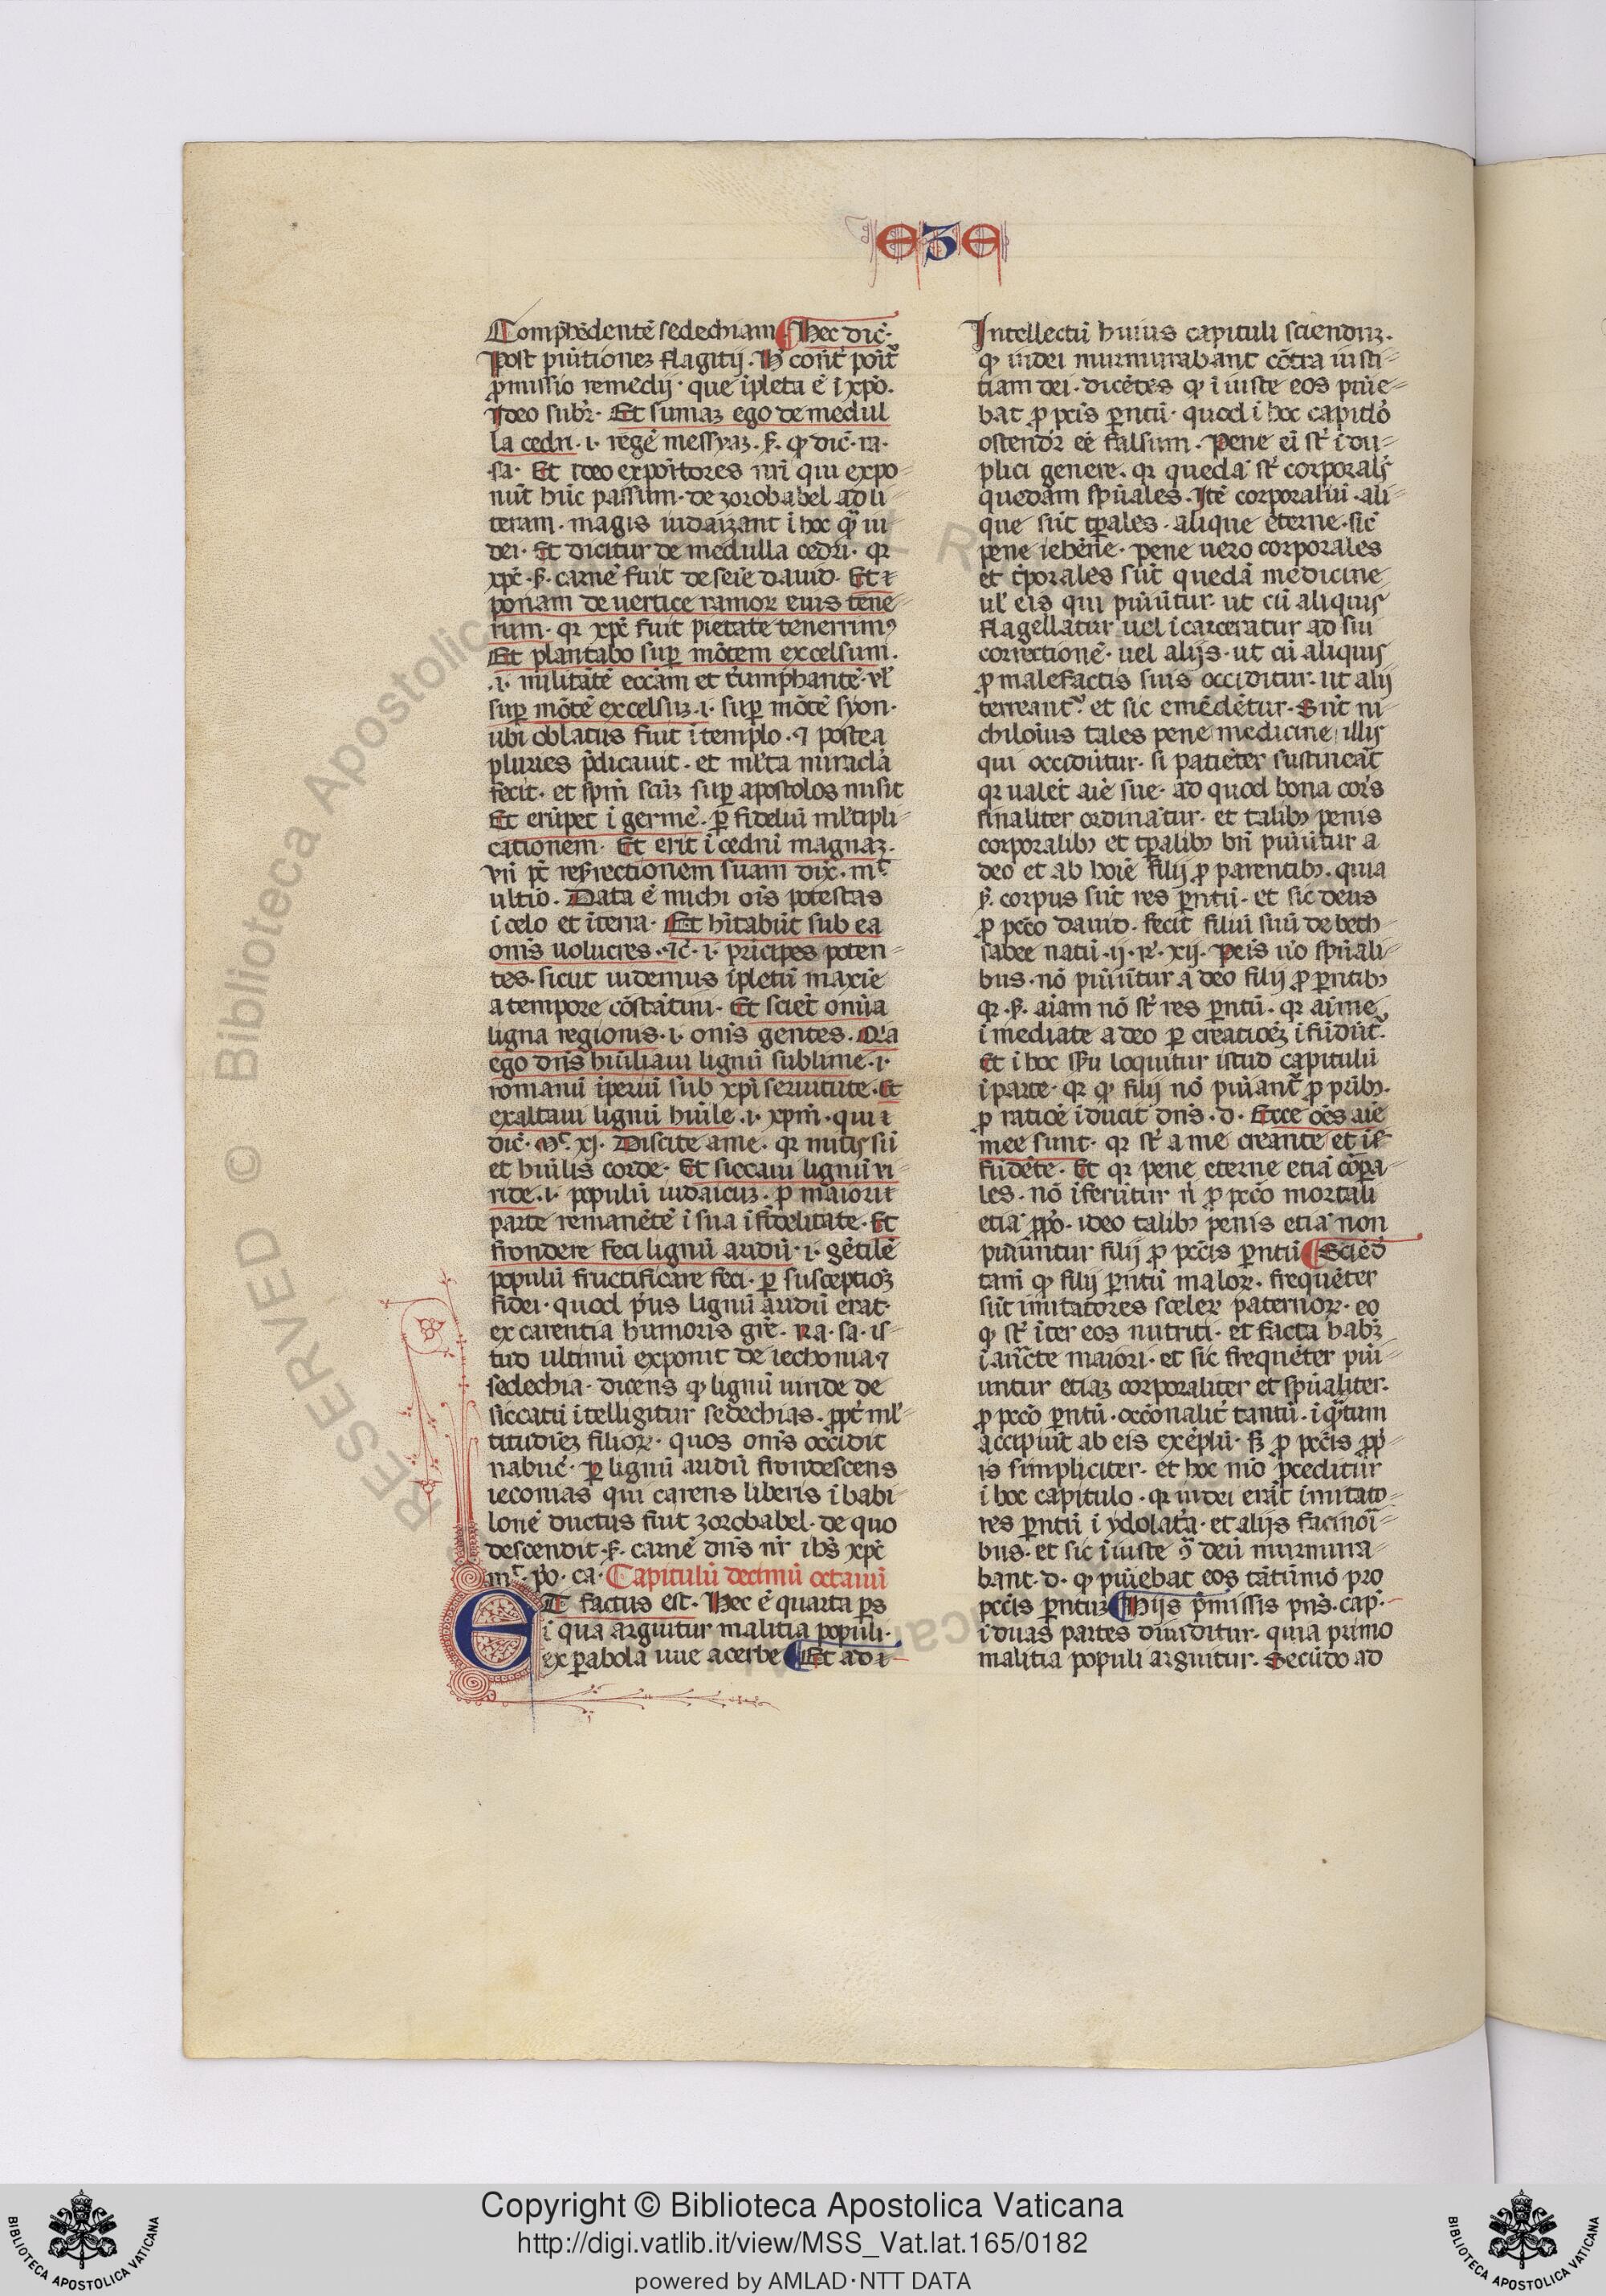 eze
Comp̄hēdentē sedechiam ¶ Hec dic̄.
Post pūitionez flagitij. H̄ cōn̄t pōit̄
ꝓmissio remedij. que īpleta ē ī xp̄o.
Ideo subr̄. Et sumaz ego de medul
la cedri .i. regē messyaz. s̄. ꝙ dic̄. ra.
sa. Et ideo expōitores nr̄i qui expo-
nūt hūc passum. de zorobabel ad li-
teram. magis iudaizant ī hoc qͣꝫ iu-
dei. Et dicitur de medulla cedri. qꝛ
xpc̄ .s̄. carnē fuit de seīe dauid. Et ī
ponam de uertice ramoꝝ eius tene-
rum. qꝛ xpc̄ fuit pietate tenerrimꝰ
Et plantabo suꝑ mōtem excelsum.
.i. militātē eccāam et t̄umphantē. vl̄
suꝑ mōtē excelsuz .i. suꝑ mōtē syon.
ubi oblatus fuit ī templo. ⁊ postea
pluries p̄dicauit. et ml̄ta miracl̄a
fecit. et sp̄m sc̄uz suꝑ apostolos misit
Et erūpet ī germē. ꝑ fideliū ml̄tipli-
cationem. Et erit ī cedrū magnaz.
vn̄ pꝰ resr̄rectionem suam dix̄. mͭ
ultio. Data ē michi ōis potestas
ī celo et ī terra. Et hītabūt sub ea
om̄s uolucres. ⁊c̄ .i. prīcipes poten-
tes. sicut uidemus īpletū maxīe
a tempore cōstātini. Et sciēt omīa
ligna regionis .i. om̄s gentes. Qꝛa
ego dn̄s hūiliaui lignū sublime .i.
romanū īperiū sub xp̄i seruitute. Et
exaltaui lignū hūile .i. xp̄m. qui ī
dic̄. Mͭ. xj. Discite a me. qꝛ mitis sū
et hūilis corde. Et siccaui lignū vi-
ride .i. populū iudaicuz. ꝓ maiori
parte remanētē ī sua īfidelitate. Et
frondere feci lignū aridū .i. gētilē
populū fructificare feci. ꝑ susceptiōꝫ
fidei. quod p̄us lignū aridū erat.
ex carentia humoris gr̄e. Ra. sa. is-
tud ultimū exponit de iechonia ⁊
sedechia. dicens ꝙ lignū uiride de
siccatū ītelligitur sedechias. ꝓpt̄ ml̄-
titudiēz filioꝝ. quos om̄s occidit
nabuc̄. ꝑ lignū aridū frondescens
ieconias qui carens liberis ī babi-
lonē ductus fuit zorobabel. de quo
descendit .s̄. carnē dn̄s nr̄ ih̄s xpc̄
mͭ. p̄o. ca. Capitulū decimū octauū
ET factus est. Hec ē quarta ꝑs
ī qua arguitur malitia populi.
ex ꝑabola uue acerbe ¶ Et ad ī-
Intellectū huius capituli sciendūz.
ꝙ iudei murmurabant cōtra iusti-
tiam dei. dicētes ꝙ ī iuste eos pūie-
bat ꝓ pc̄is ꝑntū. quod ī hoc capitl̄o
ostend̄r eē falsum. Pene ei st̄ ī du-
plici genere. qꝛ quedā st̄ corporal̄s
quedam sp̄uales. Itē corporaliū. ali-
que sūt tꝑales. alique eterne. sic̄
pene iehēne. Pene uero corporales
et tꝑporales sūt quedā medicine
ul̄ eis qui pūiūtur. ut cū aliquis
flagellatur uel īcarceratur ad sui
correctionē. uel alijs. ut cū aliquis
ꝓ malefactis suis occiditur. ut alij
terreantᷣ. et sic emēdētur. Sūt ni-
chilōius tales pene medicine illis
qui occidūtur. si patiēter sustineāt
qꝛ ualēt aīe sue. ad quod bona cor̄s
finaliter ordināntur. et talibꝫ penis
corporalibꝫ et tꝑalibꝫ bn̄ pūiūtur a
deo et ab hoīe filij ꝓ parentibꝫ. quia
s̄. corpus sūt res ꝑntū. et sic deus
ꝓ pcc̄o dauid. fecit filiū suū de beth-
sabee natū .ij. R̄. xij. Peis ūo sp̄uali-
bus. nō pūiūtur a deo filij ꝓ ꝑntibꝫ
qꝛ .s̄. aīam nō st̄ res ꝑntū. qꝛ aīme
īmediate a deo ꝑ creatiōeꝫ īfūdūt̄.
Et ī hoc sēsu loquitur istud capitulū
ī parte. qꝛ ꝙ filij nō pūiant̄ ꝓ pr̄ibꝫ.
ꝑ ratiōē īducit dn̄s. d. Ecce oēs aīe
mee sunt. qꝛ st̄ a me creante et īf-
fūdēte. Et qꝛ pene eterne etiā cōrpa-
les. nō īferūtur n̄ ꝓ pcc̄o mortali
etiā ꝓp̄o. ideo talibꝫ penis etiā non
pūiūntur filij ꝓ pcc̄is ꝑntū ¶ Sciēd̄
tam̄ ꝙ filij ꝑntū maloꝝ. frequēter
sūt imitatores sceleꝝ paternoꝝ. eo
ꝙ st̄ īter eos nutriti. et facta habꝫ
ī aūcte maiori. et sic frequēter pūi-
untur etiaz corporaliter et sp̄ualiter.
ꝓ pcc̄o ꝑntū. occōnalit̄ tantū. ī qͣtum
accipiūt ab eis exēplū. sꝫ ꝓ pcc̄is ꝓp̄-
is simpliciter. et hoc mō ꝓceditur
ī hoc capitulo. qꝛ iudei erāt imitato-
res ꝑntū ī ydolat̄a. et alijs facinoī-
bus. et sic ī iuste ꝯ̄ deū murmura-
bant. d. ꝙ pūiebat eos tātūmō pro
pcc̄is ꝑntuꝫ ¶ Hijs p̄missis pn̄s. cap̄.
ī duas partes diuiditur. quia primo
malitia populi arguitur. Secūdo ad
RESERVED © Biblioteca Apostolica
Copyright © Biblioteca Apostolica Vaticana
http://digi.vatlib.it/view/MSS_Vat.lat.165/0182
powered by AMLAD·NTT DATA
BIBLIOTECA APOSTOLICA VATICANA
BIBLIOTECA APOSTOLICA VATICANA